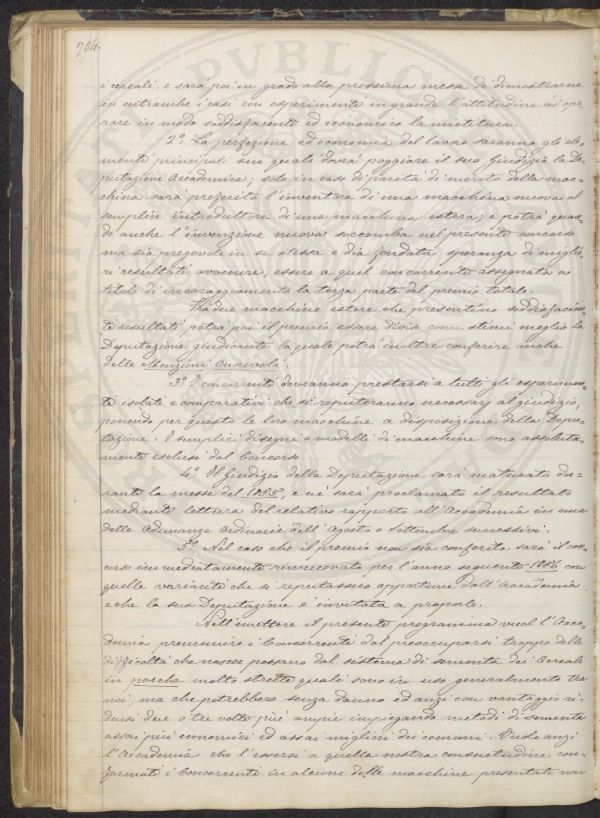 204.
i cereali, e sarà poi in grado alla prossima messe di dimostrarne
in entrambe i casi con esperimento in grande l'attitudine ad ope
rare in modo soddisfacente ed economico la mietitura.
2º La perfezione ed economia del lavoro saranno gli ele=
menti principali sui quali dovrà poggiare il suo giudizio la De
putazione Accademica; solo in caso di parità di merito della mac=
china sarà preferito l'inventore di una macchina nuova al
semplice introduttore di una macchina estera; e potrà quan
do anche l'invenzione nuova soccomba nel presente concorso
ma sia pregevole in se stessa e dia fondata speranza di miglio
ri resultati avvenire, essere a quel concorrente assegnata a
titolo di incoraggiamento la terza parte del premio totale.
Tra due macchine estere che presentino soddisfacen
te resultato potrà poi il premio essere diviso come stimi meglio la
Deputazione giudicante la quale potrà inoltre conferire anche
delle Menzioni Onorevoli.
3º I concorrenti dovranno prestarsi a tutti gli esperimen=
ti isolati e comparativi che si reputeranno necessarj al giudizio,
ponendo per questo le loro macchine a disposizione della Depu=
tazione. I semplici disegni o modelli di macchine sono assoluta
mente esclusi dal Concorso
4º Il Giudizio della Deputazione sarà maturato du=
rante la messe del 1855, e ne sarà proclamato il resultato
mediante lettura del relativo rapporto all'Accademia in una
delle Adunanze Ordinarie dell'Agosto o Settembre successivi.
5º Nel caso che il premio non sia conferito, sarà il con
corso immediatamente rinnuovato per l'anno seguente 1856 con
quelle varianti che si reputassero opportune dall'Accademia
e che la sua Deputazione è invitata a proporle.
Nell'emettere il presente programma vuol l'Acca=
demia premunire i Concorrenti dal preoccuparsi troppo delle
difficoltà che nascer possano dal sistema di sementa dei Cereali
in porche molto strette quali sono in uso generalmente tra
noi, ma che potrebbero senza danno ed anzi con vantaggio ri=
dursi due o tre volte più ampie impiegando metodi di sementa
assai più economici ed assai migliori dei comuni. Vuole anzi
l'Accademia che l'essersi a quella nostra consuetudine con=
formati i Concorrenti in alcune delle macchine presentate non